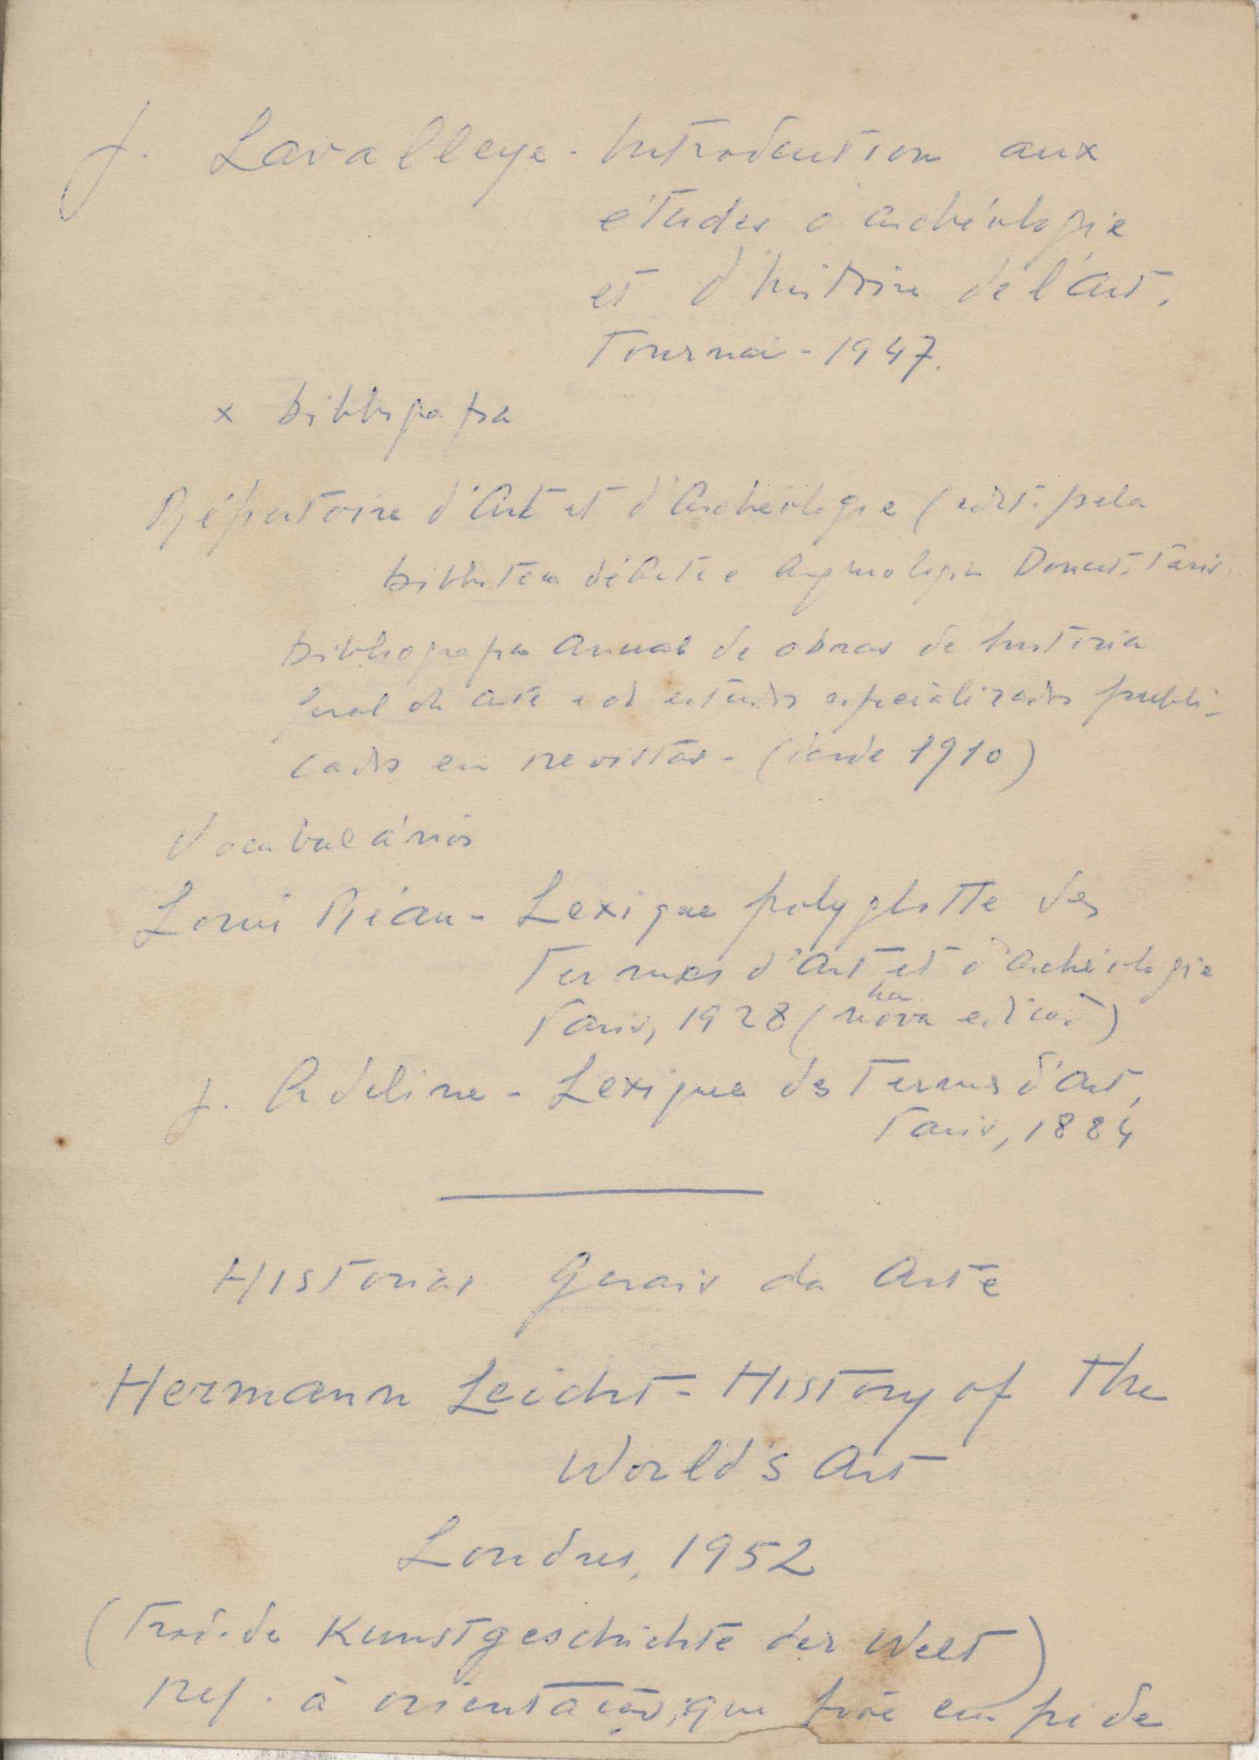 J. Lavalleye - Introduction aux
études d'archéologie
et d'histoire de l'Art.
Tournai - 1947.
x bibliografia
Répertoire d'Art et d'Archéologie (edit. pela
biblioteca de Arte e Arqueologia Doucet. Paris
bibliografia anual de obras de historia
geral da arte e de estudos especializados publi-
cados em revistas - (desde 1910)
Vocabulários
Louis Réau - Lexique polyglotte des
Termes d'Art et d'Archéologie
ha
Paris, 1928 (nova edição)
J. Adeline - Lexique des Termes d'Art,
Paris, 1884
Historias Gerais da Arte
Hermann Leicht - History of the
World's Art
Londres, 1952
(Trad. de Kunstgeschichte der Welt)
Ref. à orientação, que põe em pé de